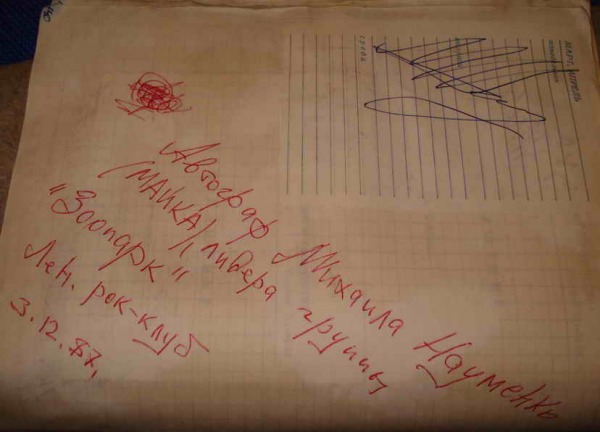 Автограф Михаила Науменко
(МАЙКА), лидера группы
"Зоопарк"
Лен. рок-клуб
3.12.87.